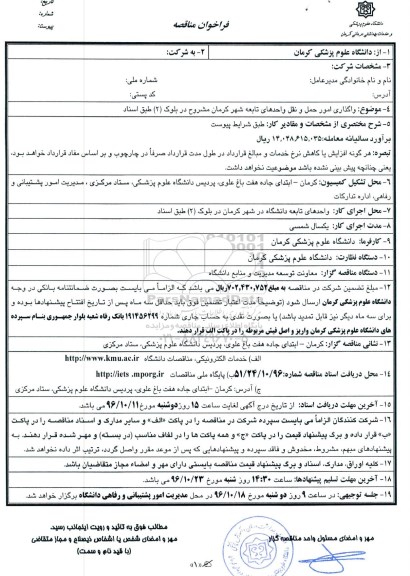 دانشگاه علوم پزشکی
و خدمات بهداشتی درمانی کرمان
فراخوان مناقصه
شماره:
تاریخ:
پیوست:
۱- از: دانشگاه علوم پزشکی کرمان
۲- به شرکت:
۳- مشخصات شرکت:
نام و نام خانوادگی مدیرعامل:
شماره ملی:
آدرس:
کد پستی:
۴- موضوع: واگذاری امور حمل و نقل واحدهای تابعه شهر کرمان مشروح در بلوک (۲) طبق اسناد
۵- شرح مختصری از مشخصات و مقادیر کار: طبق شرایط پیوست
برآورد سالیانه معامله: ۱۳.۰۴۸.۶۱۵.۰۳۵ ریال
تبصره: هر گونه افزایش یا کاهش نرخ خدمات و مبالغ قرارداد در طول مدت قرارداد صرفاً در چارچوب و بر اساس مفاد قرارداد خواهد بود،
یعنی چنانچه پیش بینی نشده باشد موضوعیت نخواهد داشت.
۶- محل تشکیل کمیسیون: کرمان – ابتدای جاده هفت باغ علوی، پردیس دانشگاه علوم پزشکی، ستاد مرکزی ، مدیریت امور پشتیبانی و
رفاهی، اداره تدارکات
۷- محل اجرای کار: واحدهای تابعه دانشگاه در شهر کرمان در بلوک (۲) طبق اسناد
۸- مدت اجرای کار: یکسال شمسی
۹- کارفرما: دانشگاه علوم پزشکی کرمان
۱۰- دستگاه نظارت: دانشگاه علوم پزشکی کرمان
۱۱- دستگاه مناقصه گزار: معاونت توسعه مدیریت و منابع دانشگاه
۱۲- مبلغ تضمین شرکت در مناقصه به مبلغ ۷۰۲.۴۳۰.۷۵۲ ریال می باشد که الزاماً می بایست بصورت ضمانتنامه بانکی در وجه
دانشگاه علوم پزشکی کرمان ارسال شود (توضیحاً مدت اعتبار تضمین فوق باید حداقل سه ماه پس از تاریخ افتتاح پیشنهادها بوده و
برای سه ماه دیگر نیز قابل تمدید باشد) یا بصورت نقدی به حساب جاری شماره ۱۹۱۴۵۶۲۹۹ بانک رفاه شعبه بلوار جمهوری بنام سپرده
های دانشگاه علوم پزشکی کرمان واریز و اصل فیش مربوطه را در پاکت الف قرار دهند.
۱۳- نشانی مناقصه گزار: کرمان – ابتدای جاده هفت باغ علوی، پردیس دانشگاه علوم پزشکی، ستاد مرکزی
۱۴- محل دریافت اسناد مناقصه شماره: ۵۱/۲۴/۱۰/۹۶
الف) خدمات الکترونیکی، مناقصات دانشگاه http://www.kmu.ac.ir
ب) پایگاه ملی مناقصات http://iets.mporg.ir
ج) آدرس: کرمان – ابتدای جاده هفت باغ علوی، پردیس دانشگاه علوم پزشکی، ستاد مرکزی
۱۵- آخرین مهلت دریافت اسناد: از تاریخ درج آگهی لغایت ساعت ۱۵ روز دوشنبه مورخ ۹۶/۱۰/۱۱ می باشد.
۱۶- شرکت کنندگان الزاماً می بایست سپرده شرکت در مناقصه را در پاکت «الف» و سایر مدارک و اسناد مناقصه را در پاکت
«ب» قرار داده و برگ پیشنهاد قیمت را در پاکت «ج» و همه پاکت ها را در لفاف مناسب (در بسته) و مهر شده قرار دهند. به
پیشنهادهای مبهم، مشروط، مخدوش و فاقد سپرده و پیشنهادهایی که پس از موعد مقرر واصل گردد، ترتیب اثر داده نخواهد شد.
۱۷- کلیه اوراق، مدارک، اسناد و برگ پیشنهاد قیمت مناقصه بایستی دارای مهر و امضاء مجاز متقاضیان باشد.
۱۸- آخرین مهلت تسلیم پیشنهادها: ساعت ۱۴:۳۰ روز شنبه مورخ ۹۶/۱۰/۲۳ می باشد.
۱۹- جلسه توجیهی: در ساعت ۹ روز دو شنبه مورخ ۹۶/۱۰/۱۸ در محل مدیریت امور پشتیبانی و رفاهی دانشگاه برگزار خواهد شد.
مطالب فوق به تائید و رویت اینجانب رسید.
مهر و امضاء مسئول واحد مناقصه گزار
مهر و امضای شخص یا اشخاص ذیصلاح و مجاز متقاضی
(با قید نام و سمت)